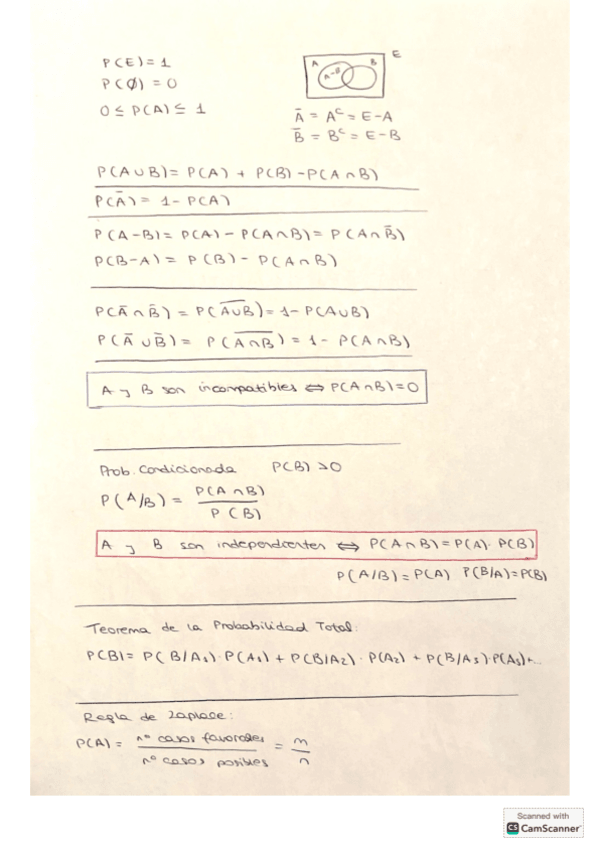 P(E) = 1
P(∅) = 0
0 ≤ P(A) ≤ 1
E
A B
A-B
Ā = Aᶜ = E-A
B̄ = Bᶜ = E-B
P(A∪B) = P(A) + P(B) - P(A∩B)
P(Ā) = 1 - P(A)
P(A-B) = P(A) - P(A∩B) = P(A∩B̄)
P(B-A) = P(B) - P(A∩B)
P(Ā∩B̄) = P(A̅∪̅B̅) = 1 - P(A∪B)
P(Ā∪B̄) = P(A̅∩̅B̅) = 1 - P(A∩B)
A y B son incompatibles ⇔ P(A∩B) = 0
Prob. Condicionada P(B) > 0
P(A/B) = P(A∩B)
P(B)
A y B son independientes ⇔ P(A∩B) = P(A)· P(B)
P(A/B) = P(A) P(B/A) = P(B)
Teorema de la Probabilidad Total:
P(B) = P(B/A₁)·P(A₁) + P(B/A₂)·P(A₂) + P(B/A₃)·P(A₃)+...
Regla de Laplace:
P(A) = nº casos favorables = m
nº casos posibles n
Scanned with
CS CamScanner